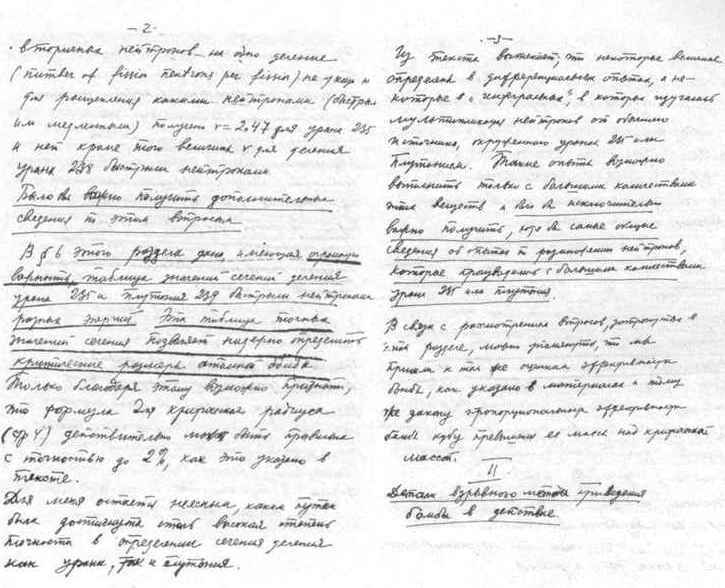 -2-
вторичных нейтронов на одно деление
(number of fission neutrons per fission) не указ
для расщепления какими нейтронами (быстры-
ми медленными) получено ν = 2.47 для урана 235
и нет кроме того величины ν для деления
урана 238 быстрыми нейтронами
Было бы важно получить дополнительные
сведения по этим вопросам
В § 6 этого раздела дана, имеющая огромную
важность, таблица значений сечений деления
урана 235 и плутония 239 быстрыми нейтронами
разных энергий. Эта таблица точных
значений сечения позволяет надежно определить
критические размеры атомной бомбы
Только благодаря этому возможно признать,
что формула для критических радиуса
(стр 4) действительно может быть правильна
с точностью до 2%, как это указано в
тексте.
Для меня остается неясным, каким путем
была достигнута столь высокая степень
точности в определении сечения деления
как урана, так и плутония.
-3-
Из текста вытекает, что некоторые величины
определены в дифференциальных опытах, а не-
которые в "интегральных", в которых изучалась
мультипликация нейтронов от обычного
источника, окруженного ураном 235 или
плутонием. Такие опыты возможно
выполнить только с большими количествами
этих веществ и было бы исключительно
важно получить, хотя бы самые общие
сведения об опытах по размножению нейтронов,
которые производились с большими количествами
урана 235 или плутония.
В связи с рассмотрением вопросов, затронутых в
этом разделе, можно отметить, что мы
пришли к той же оценке эффективности
бомбы, как указано в материалах и тому
же закону пропорциональности эффективности
бомбы кубу превышения ее массы над критической
массой.
II
Детали взрывного метода приведения
бомбы в действие